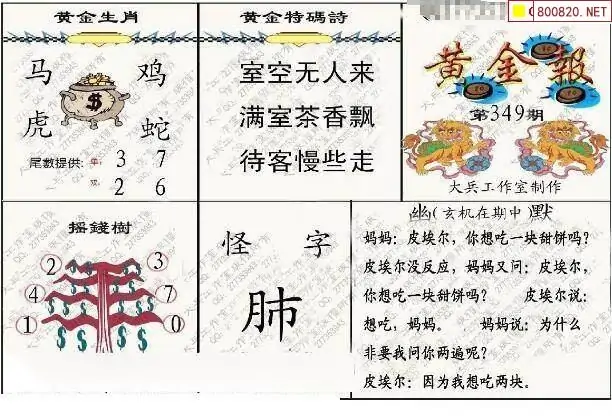 800820.NET
黄金生肖
马 鸡
虎 蛇
尾數提供: 单: 3 7
双: 2 6
黄金特碼詩
室空无人来
满室茶香飘
待客慢些走
黄金報
第349期
大兵工作室制作
摇錢樹
2 3
4 7
1 0
怪 字
肺
幽(玄机在期中)默
妈妈：皮埃尔，你想吃一块甜饼吗？
皮埃尔没反应，妈妈又问：皮埃尔，
你想吃一块甜饼吗？ 皮埃尔说：
想吃，妈妈。 妈妈说：为什么
非要我问你两遍呢？
皮埃尔：因为我想吃两块。